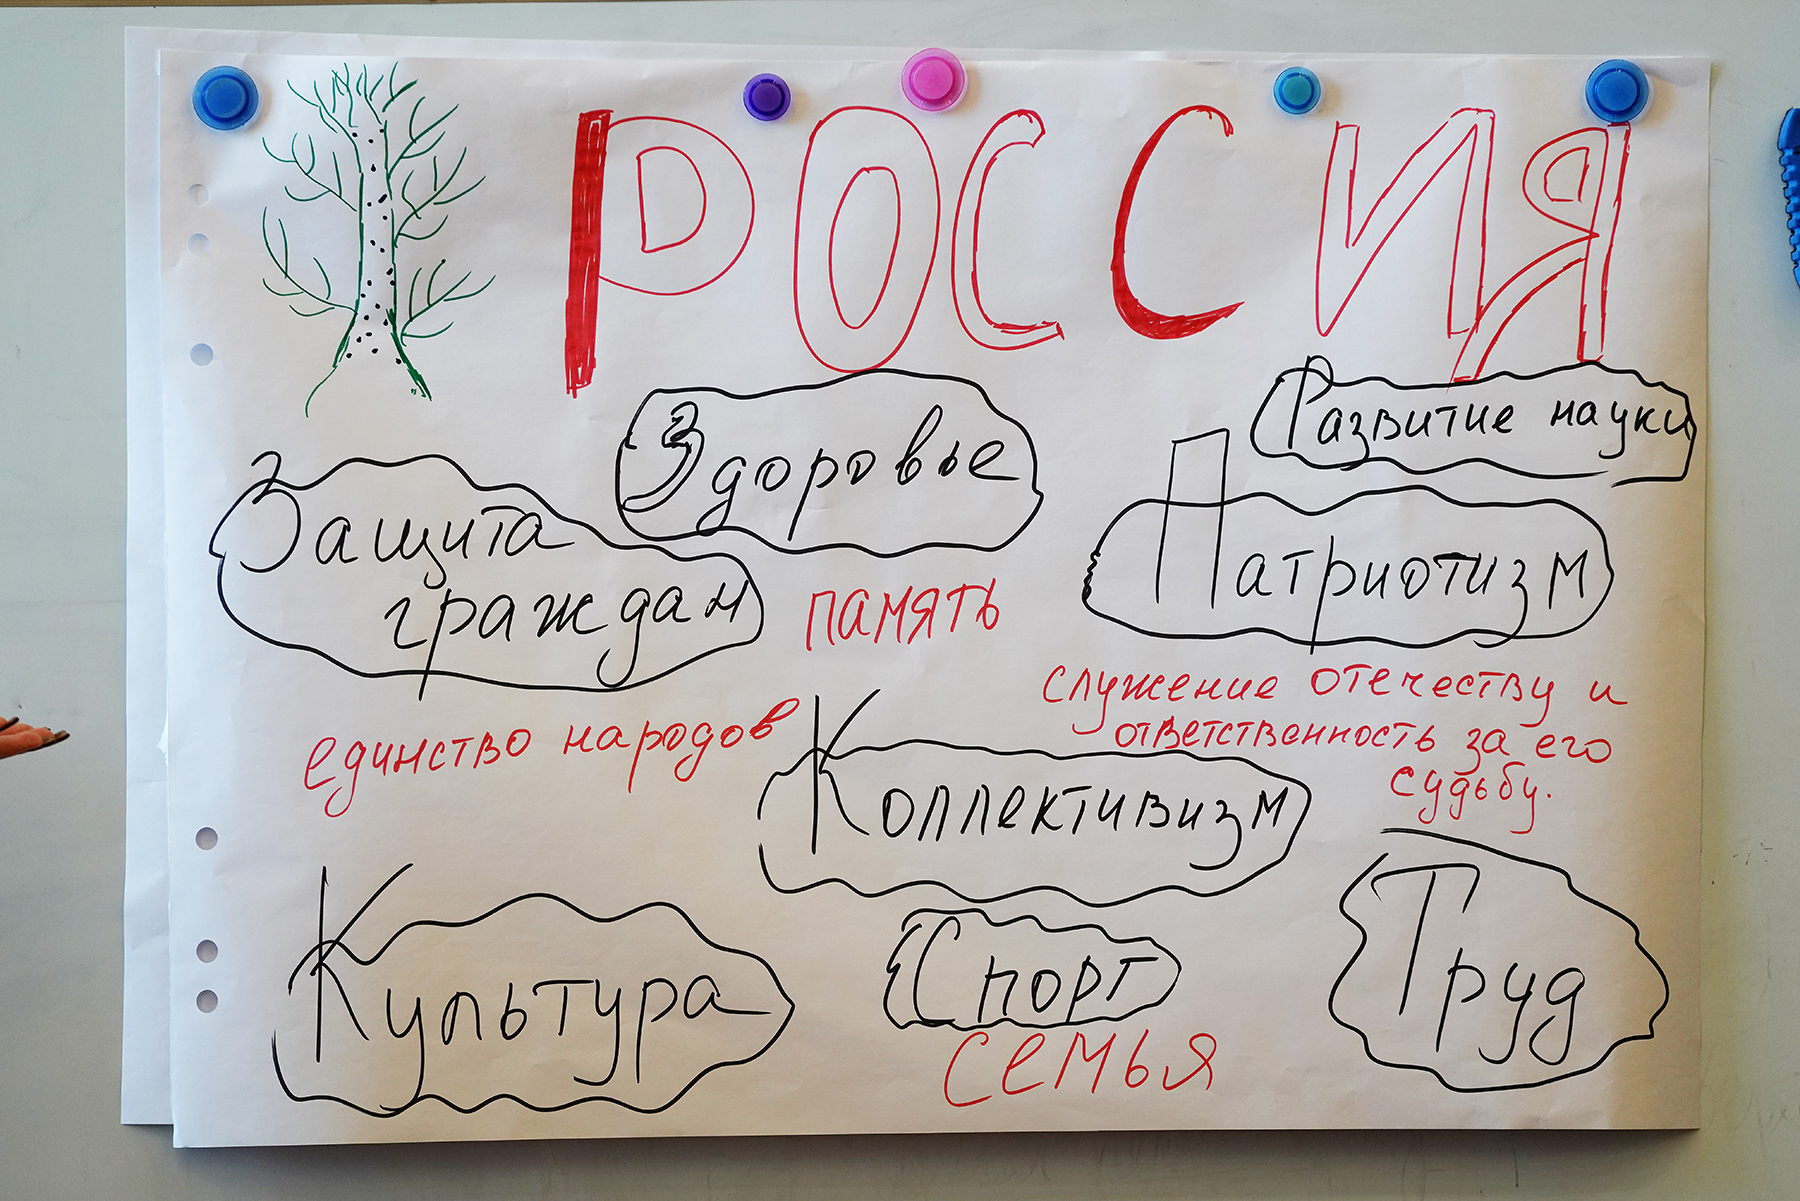 РОССИЯ
Развитие науки
Здоровье
Защита
граждан
Патриотизм
память
служение отечеству и
ответственность за его
судьбу.
единство народов
Коллективизм
Культура
Спорт
Труд
семья